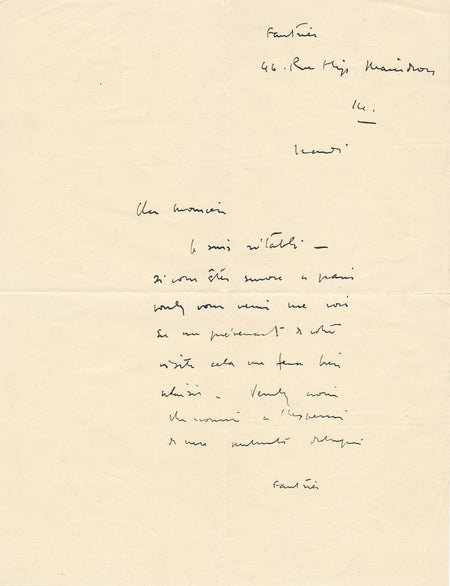 Fautrier
44. Rue Hipp Maindron
14.
mardi
Cher monsieur
je suis rétabli —
si vous êtes encore a paris
voulez vous venir me voir
en me prévenant de votre
visite cela me fera bien
plaisir. Veuillez croire
cher monsieur a l'expression
de mes sentiments
Fautrier